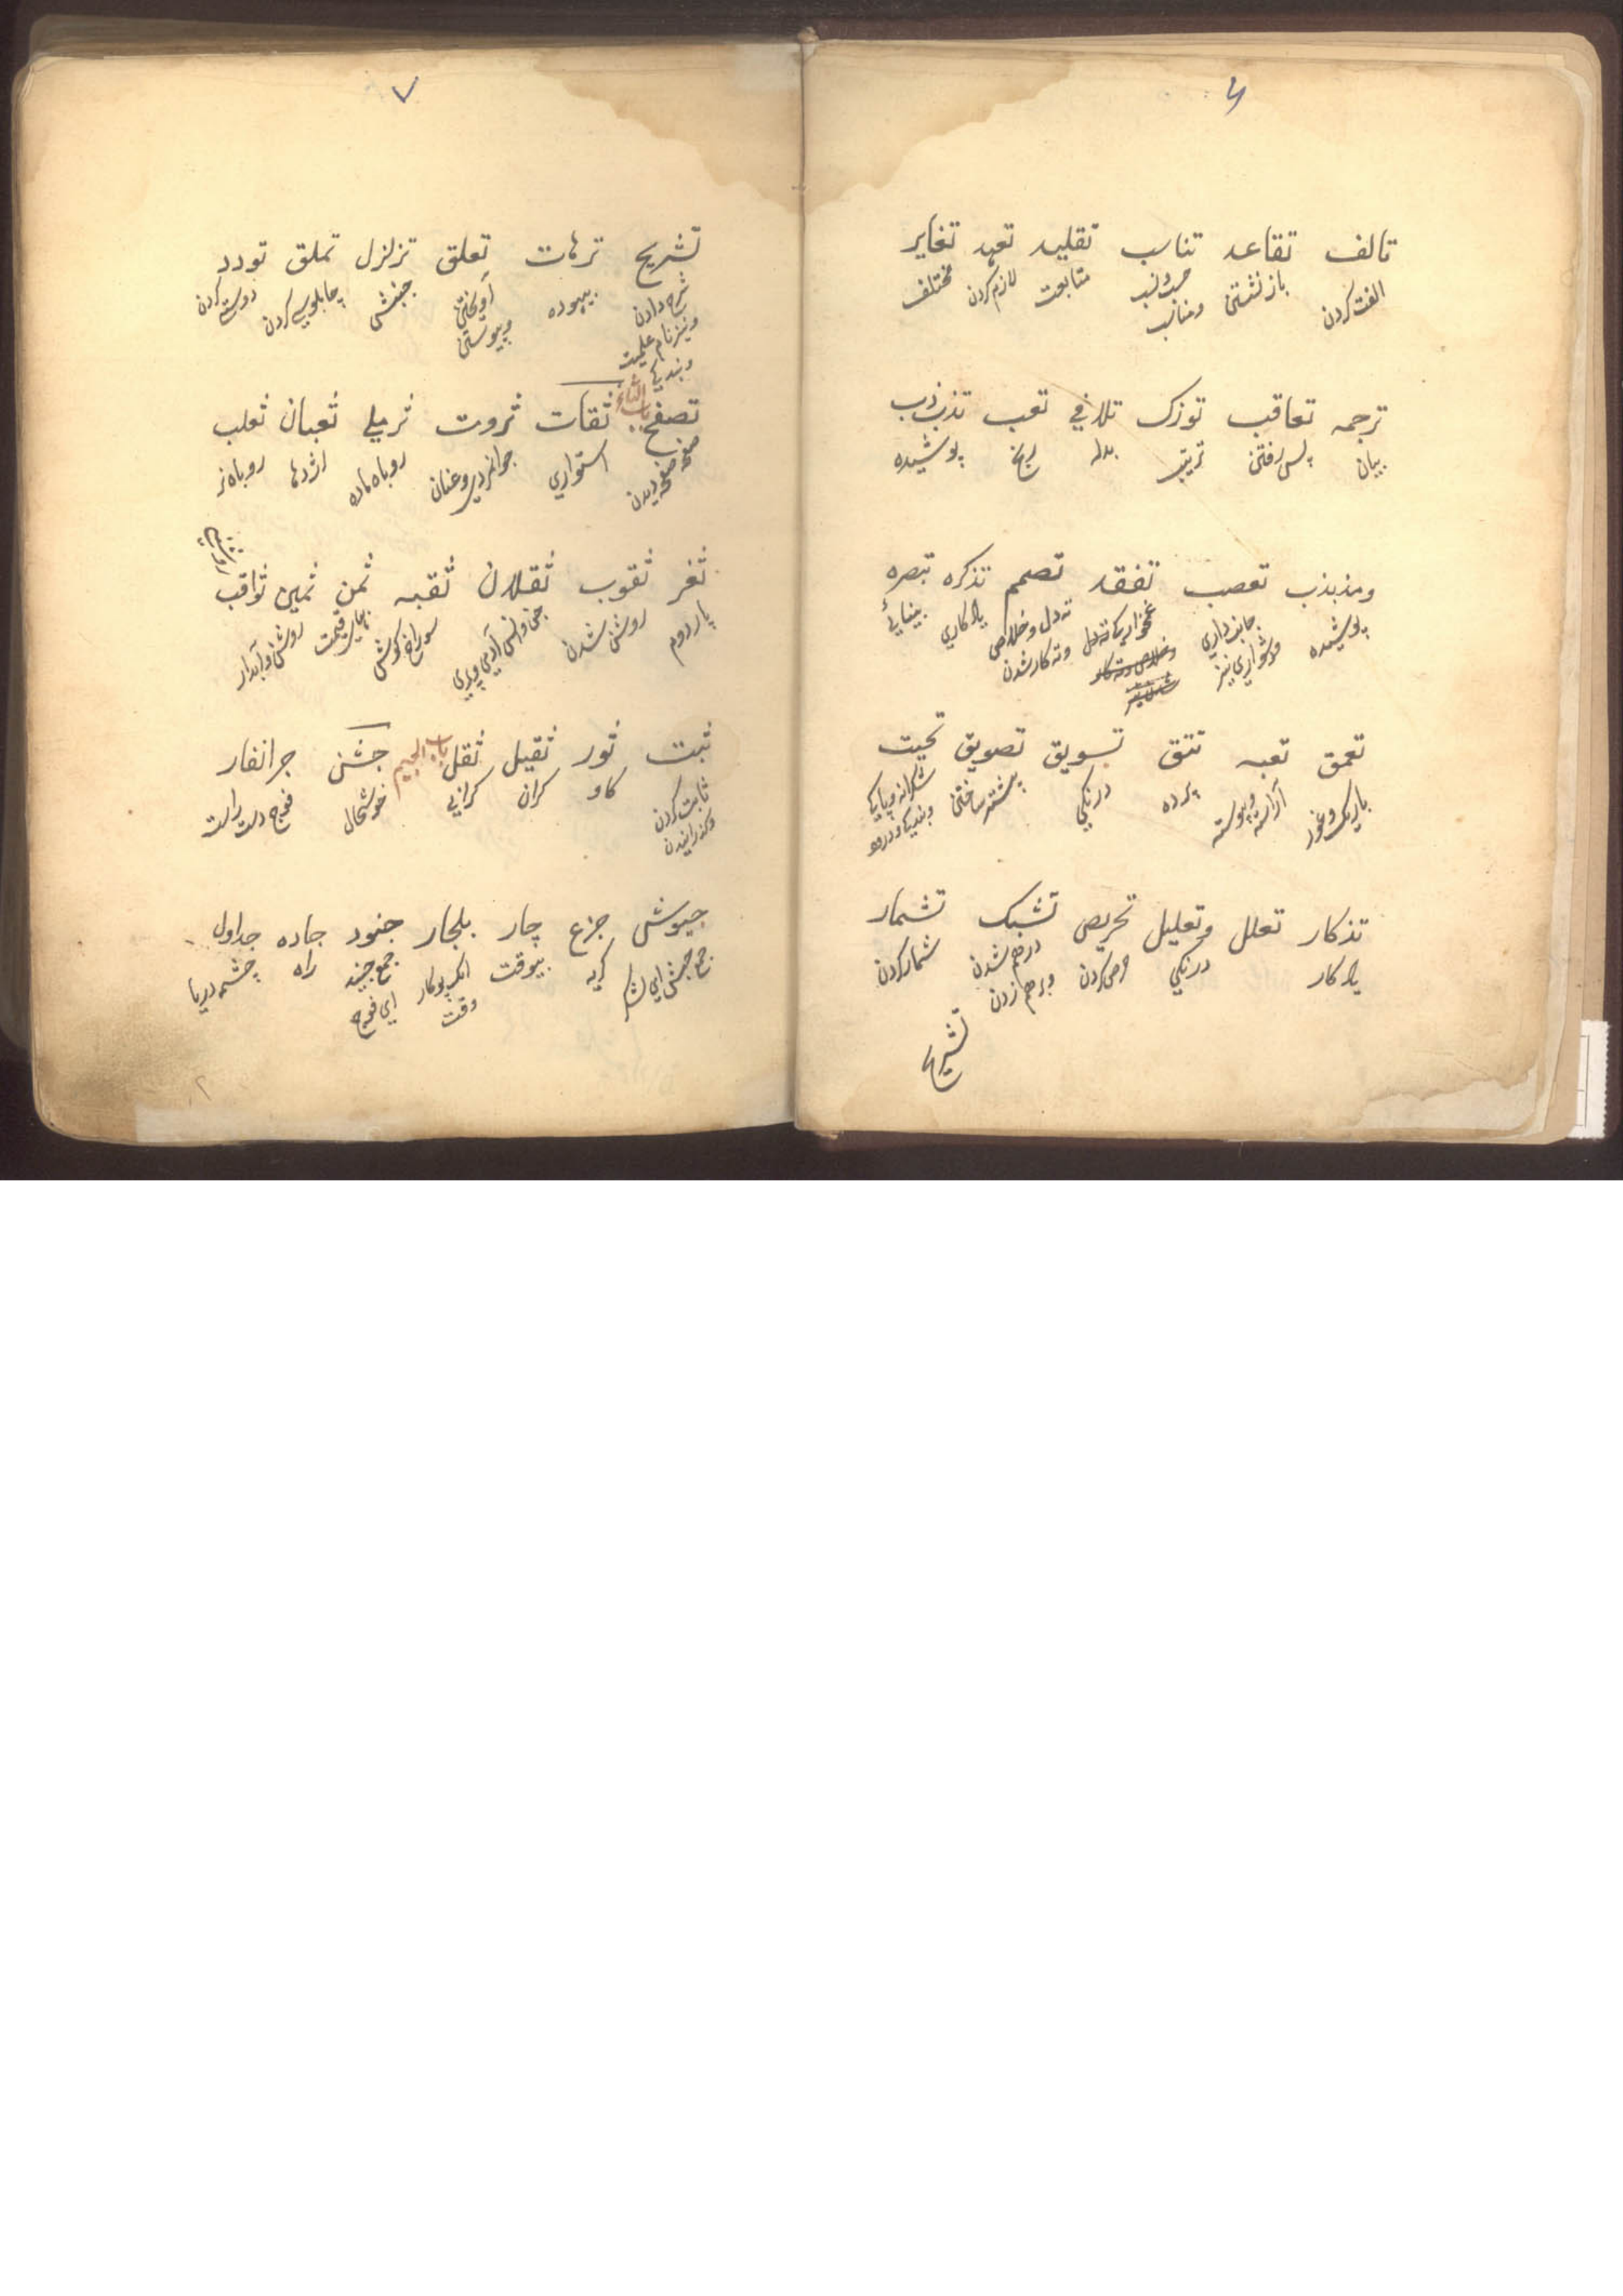 تالف تقاعد تناسب تقلید تعهد تغایر
الفت کردن باز نشستن ومناسب متابعت لازم کردن مختلف
ترجمه تعاقب توزک تلافي تعب تذبذب
بیان پس رفتن ترتیب بدله رنج پوشیده
ومذبذب تعصب تفقد تصمم تذکره تبصره
پوشیده جانبداری ته دل وخلاصی یادکاری بینایئ
وته کار شدن
تعمق تعبه تتق تسویق تصویق تحیت
باریک وغور آراسته وپیوسته پرده درنکي پیشتر ساختن
تذکار تعلل وتعلیل تحریص تشبک تشمار
یادکار درنکي حرص کردن درهم شدن وبرهم زدن شمار کردن
تشریح
۷
تشریح ترهات تعلق تزلزل تملق تودد
شرح دادن بیهوده آویختن وپیوستن جنبش چابلوسی کردن دوستی کردن
ونیز نام علمیت
تصفح باب الثاء ثقات ثروت ثرملي ثعبان ثعلب
صفحه صفحه دیدن استواري روباه ماده اژدها روباه نر
ثغر ثقوب ثقلان ثقبه ثمن ثمین ثواقب
پاردوم روشن شدن جن وانس سوراخ کوش قیمت روشن وآبدار
ثبت ثور ثقیل ثقل باب الجیم جشن جرانفار
ثابت کردن کاو کران کرانی خوشحال فوج دست راست
وکذرانیدن
جیوش جزع جار بلجار جنود جاده جداول
جمع جیش ای لشکر کریه بیوقت جمع جنید راه چشمه دریا
وقت ای فوج